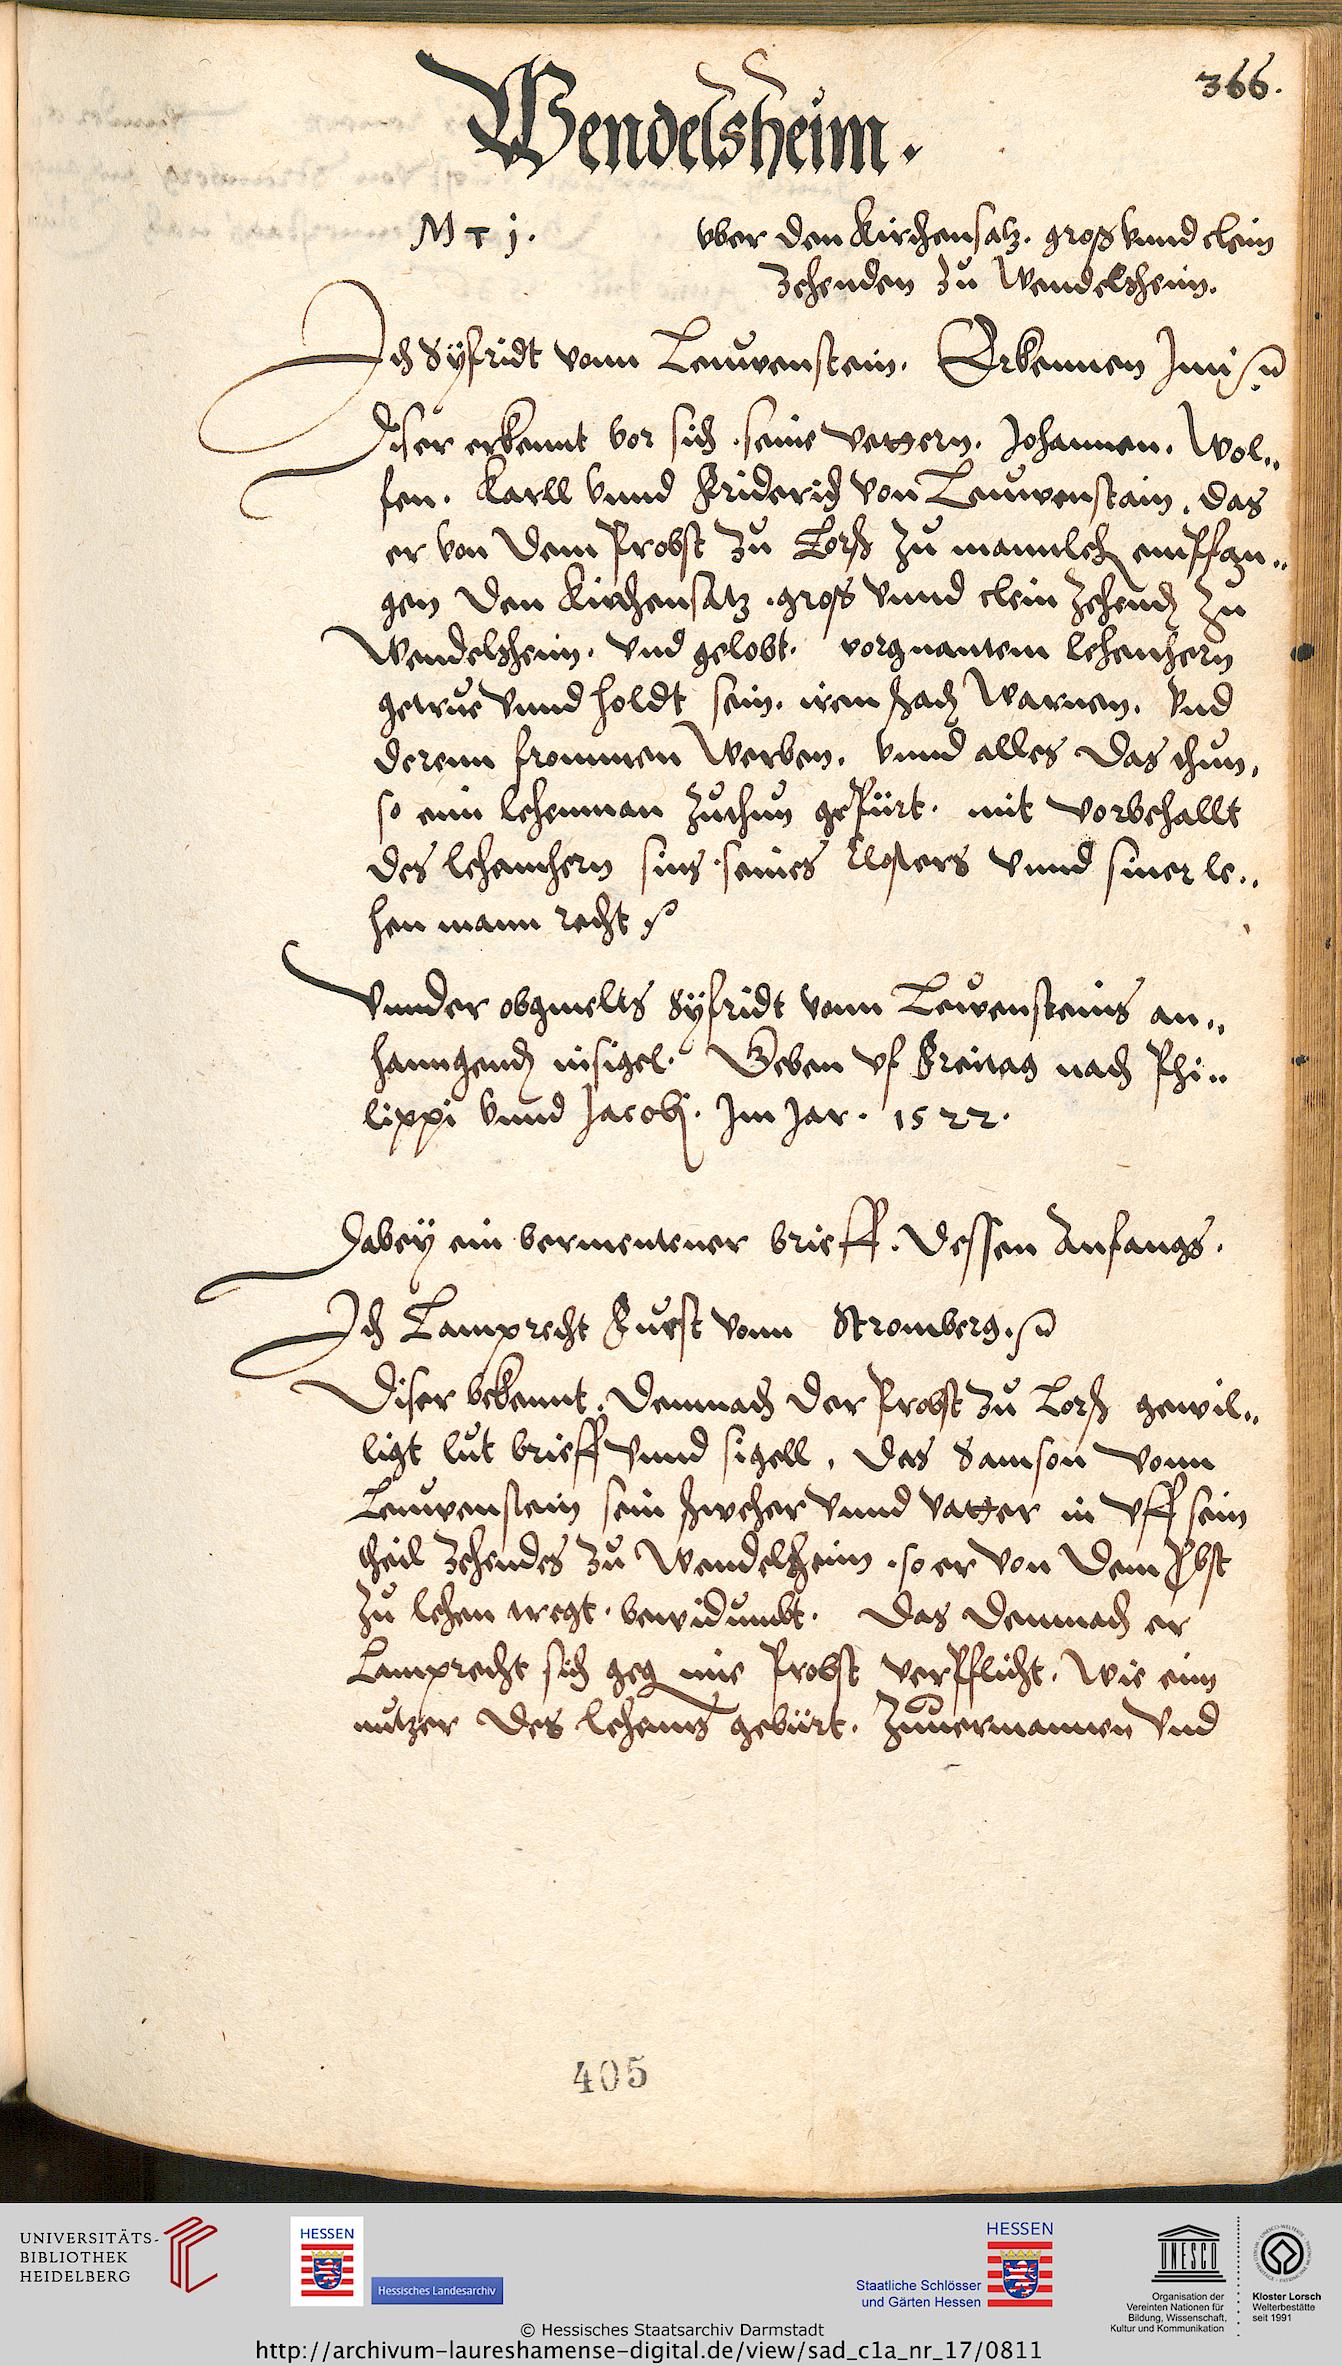 366.
Wendelsheim.
M T j. vber den Kirchensatz. groß vnnd clein
Zehenden zu Wendelsheim.
Ich Syfridt vonn Leuwenstein. Erkennen
Diser erkennt vor sich. seine vettern. Johannen. Wol„
fen. Karll vnnd Friderich von Leuwenstain. das
er von dem Probst zu Lorß zu mannleh empfan„
gen den Kirchensatz. groß vnnd clein zehend zu
Wendelßheim. vnd gelobt. vorgnantem lehenhern
getrue vnnd holdt sein. iren Warnen. vnd
derenn frommen Werben. vnnd alles das thun,
so ein lehenman zuthun gepürt. mit vorbehallt
des lehenhern sins. seines Closters vnnd siner le„
hen mann recht
Vnnder obgmelts Syfridt vonn Lewensteins an„
hanngend insigel. Geben vf Freitag nach Phi„
lippi vnnd Jacobj. Im Jar. 1522.
Dabey ein vermentener brieff. dessen Anfangs.
Ich Lamprecht Furst vonn Stromberg.
Diser bekennt. Demnach der Probst zu Lorß gewil„
ligt lut brieff vnnd sigell. das Samson vonn
Leuwenstein sein schweher vnnd vatter in vff sein
theil Zehendes zu Wendelßheim. so er von dem Pbst
zu lehen tregt. bewidumbt. Das demnach er
Lamprecht sich geg Probst verpflicht. Wie ein
nutzer des lehenns gebürt. Zuuermannen vnd
405
UNIVERSITÄTS-
BIBLIOTHEK
HEIDELBERG
HESSEN
Hessisches Landesarchiv
HESSEN
Staatliche Schlösser
und Gärten Hessen
UNESCO
Organisation der
Vereinten Nationen für
Bildung, Wissenschaft,
Kultur und Kommunikation
Kloster Lorsch
Welterbestätte
seit 1991
© Hessisches Staatsarchiv Darmstadt
http://archivum-laureshamense-digital.de/view/sad_c1a_nr_17/0811